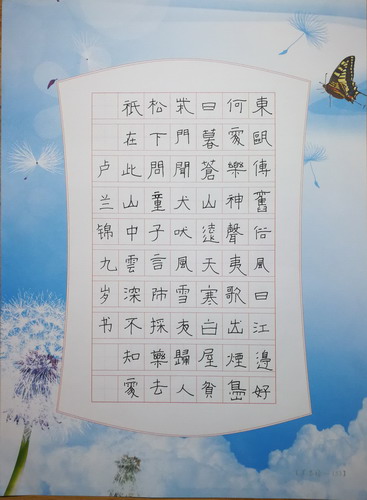 東甌傳舊俗風日江邊好
何處樂神聲夷歌出煙島
日暮蒼山遠天寒白屋貧
柴門聞犬吠風雪夜歸人
松下問童子言師採藥去
祇在此山中雲深不知處
卢兰锦九岁书